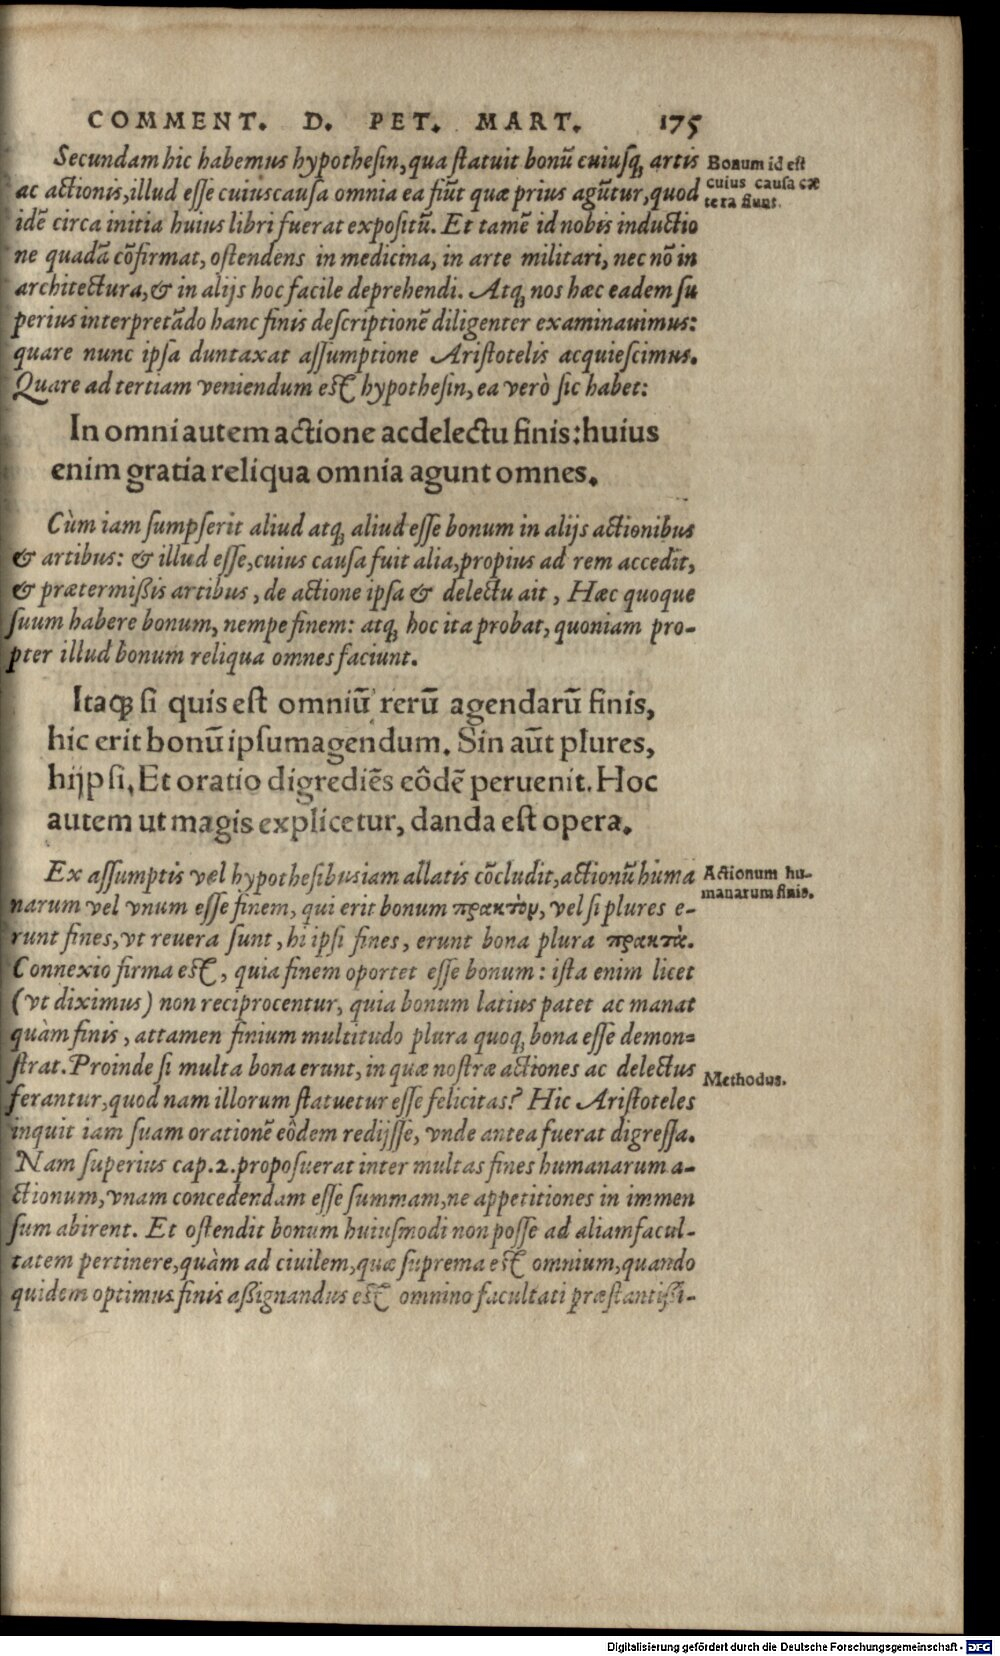 COMMENT. D. PET. MART. 175
Secundam hic habemus hypothesin, qua statuit bonū cuiusq; artis
ac actionis, illud esse cuius causa omnia ea fiūt quæ prius agūtur, quod
idē circa initia huius libri fuerat expositū. Et tamē id nobis inductio
ne quadā cōfirmat, ostendens in medicina, in arte militari, nec nō in
architectura, & in alijs hoc facile deprehendi. Atq; nos hæc eadem su
perius interpretādo hanc finis descriptionē diligenter examinauimus:
quare nunc ipsa duntaxat assumptione Aristotelis acquiescimus.
Quare ad tertiam veniendum est hypothesin, ea verò sic habet:
Bonum id est
cuius causa cæ
tera fiunt.
In omni autem actione ac delectu finis: huius
enim gratia reliqua omnia agunt omnes.
Cùm iam sumpserit aliud atq; aliud esse bonum in alijs actionibus
& artibus: & illud esse, cuius causa fuit alia, propius ad rem accedit,
& prætermißis artibus, de actione ipsa & delectu ait, Hæc quoque
suum habere bonum, nempe finem: atq; hoc ita probat, quoniam pro-
pter illud bonum reliqua omnes faciunt.
Itaq; si quis est omniū rerū agendarū finis,
hic erit bonū ipsum agendum. Sin aūt plures,
hij psi. Et oratio digrediēs eôdē peruenit. Hoc
autem ut magis explicetur, danda est opera.
Ex assumptis vel hypothesibus iam allatis cōcludit, actionū huma
narum vel vnum esse finem, qui erit bonum πρακτὸν, vel si plures e-
runt fines, vt reuera sunt, hi ipsi fines, erunt bona plura πρακτὰ.
Connexio firma est, quia finem oportet esse bonum: ista enim licet
(vt diximus) non reciprocentur, quia bonum latius patet ac manat
quàm finis, attamen finium multitudo plura quoq; bona esse demon-
strat. Proinde si multa bona erunt, in quæ nostræ actiones ac delectus
ferantur, quod nam illorum statuetur esse felicitas? Hic Aristoteles
inquit iam suam orationē eôdem redijsse, vnde antea fuerat digressa.
Nam superius cap. 2. proposuerat inter multas fines humanarum a-
ctionum, vnam concedendam esse summam, ne appetitiones in immen
sum abirent. Et ostendit bonum huiusmodi non posse ad aliam facul-
tatem pertinere, quàm ad ciuilem, quæ suprema est omnium, quando
quidem optimus finis aßignandus est omnino facultati præstantißi-
Actionum hu-
manarum finis.
Methodus.
Digitalisierung gefördert durch die Deutsche Forschungsgemeinschaft - DFG